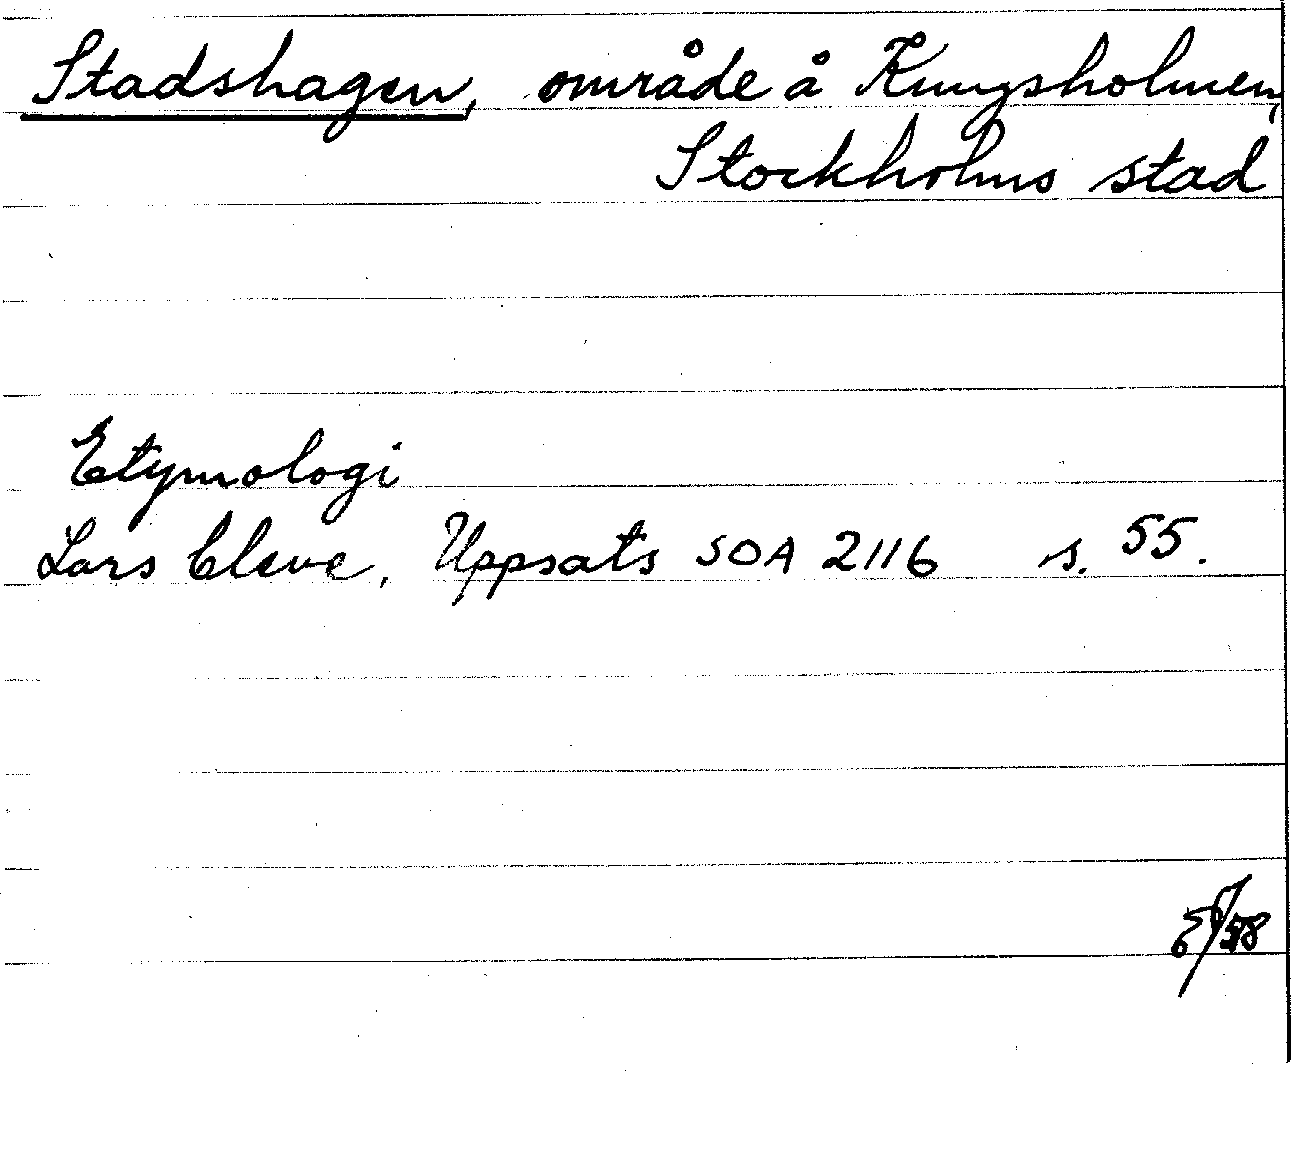 Stadshagen, område å Kungsholmen,
Stockholms stad
Etymologi
Lars Cleve, Uppsats SOA 2116 s. 55.